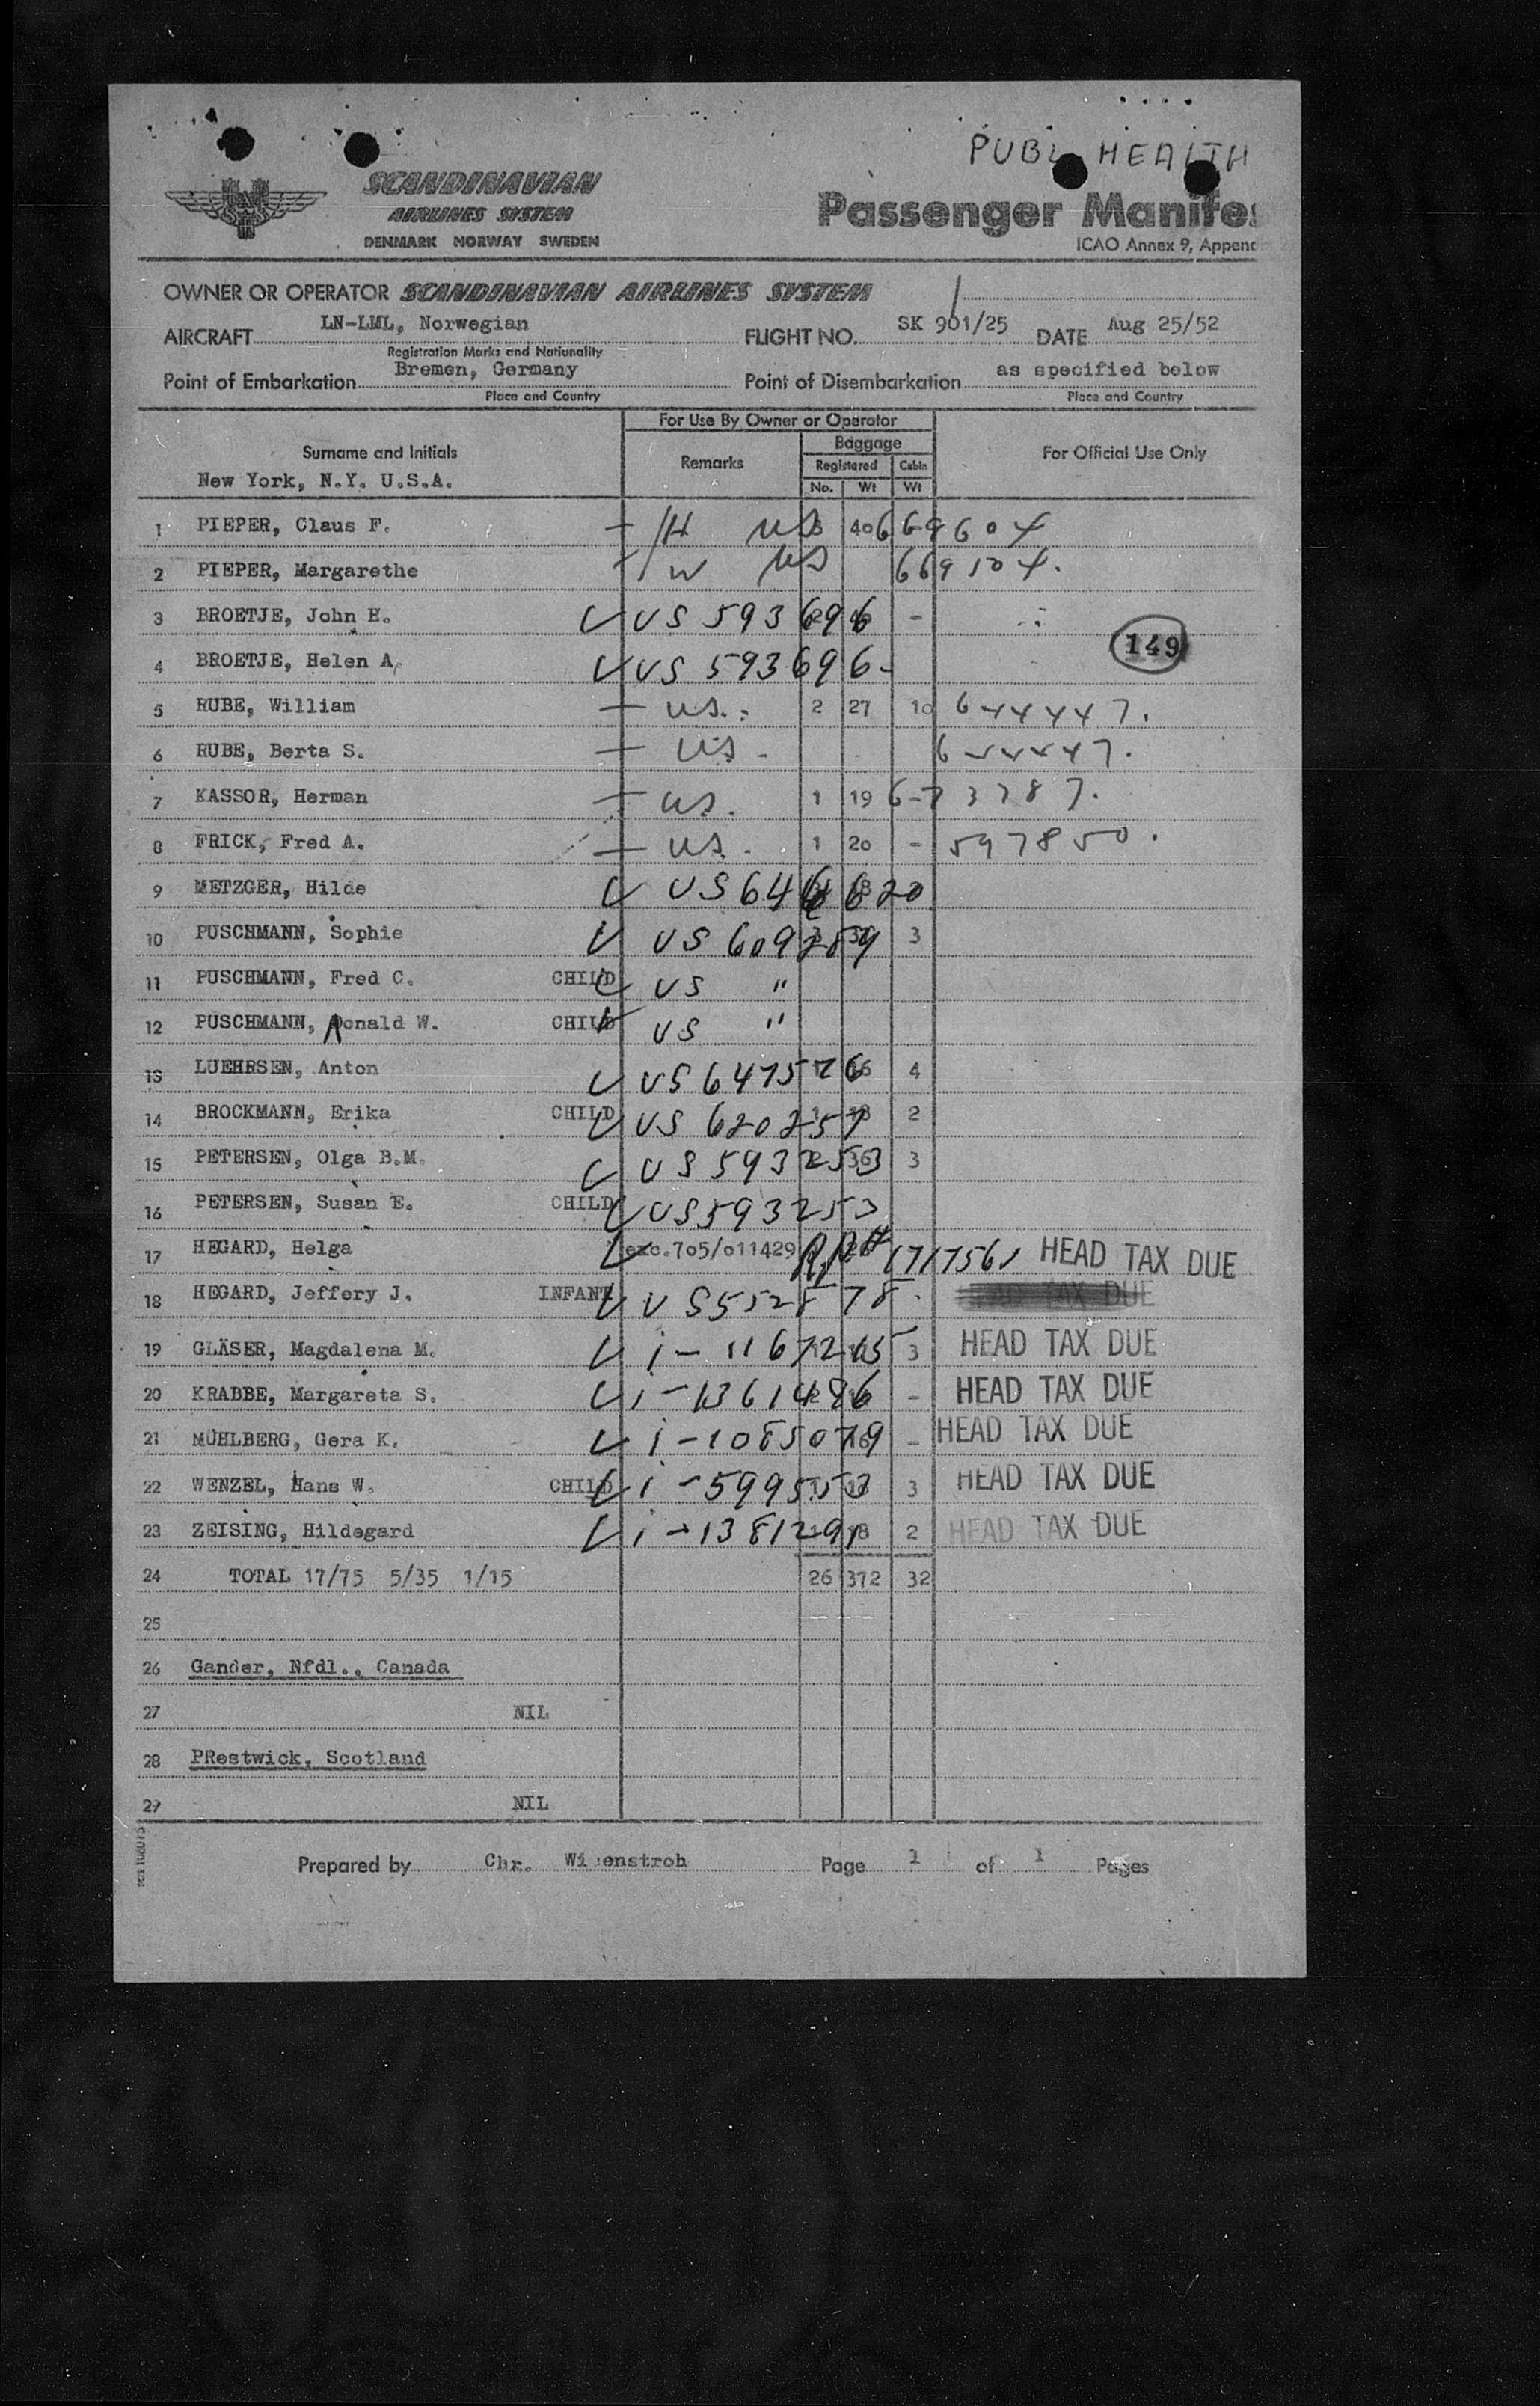 PUBL HEALTH
SCANDINAVIAN
AIRLINES SYSTEM
DENMARK NORWAY SWEDEN
Passenger Manifes
ICAO Annex 9, Append
OWNER OR OPERATOR SCANDINAVIAN AIRLINES SYSTEM
AIRCRAFT LN-LML, Norwegian FLIGHT NO. SK 901/25 DATE Aug 25/52
Registration Marks and Nationality
Point of Embarkation Bremen, Germany Point of Disembarkation as specified below
Place and Country Place and Country
For Use By Owner or Operator
Surname and Initials Remarks Baggage For Official Use Only
Registered Cabin
New York, N.Y. U.S.A. No. Wt Wt
1 PIEPER, Claus F. H US 40 669604
2 PIEPER, Margarethe W US
3 BROETJE, John H. US 593696 -
149
4 BROETJE, Helen A. US 593696-
5 RUBE, William US. 2 27 10 644447.
6 RUBE, Berta S. US - 644447.
7 KASSOR, Herman US. 1 19
8 FRICK, Fred A. US. 1 20 - 597850.
9 METZGER, Hilde US 646620
10 PUSCHMANN, Sophie US 609289 3
11 PUSCHMANN, Fred C. CHILD US "
12 PUSCHMANN, Ronald W. CHILD US "
13 LUEHRSEN, Anton US 647576 4
14 BROCKMANN, Erika CHILD US 620257 2
15 PETERSEN, Olga B.M. US 593253 3
16 PETERSEN, Susan E. CHILD US 593253
17 HEGARD, Helga exc.705/011429 HEAD TAX DUE
18 HEGARD, Jeffery J. INFANT US 552878. TAX DUE
19 GLÄSER, Magdalena M. i-1167265 3 HEAD TAX DUE
20 KRABBE, Margareta S. i-1361486 - HEAD TAX DUE
21 MÜHLBERG, Gera K. i-1085079 - HEAD TAX DUE
22 WENZEL, Hans W. CHILD i-599553 3 HEAD TAX DUE
23 ZEISING, Hildegard i-1381291 2 HEAD TAX DUE
24 TOTAL 17/75 5/35 1/15 26 372 32
25
26 Gander, Nfdl., Canada
27 NIL
28 PRestwick, Scotland
29 NIL
Prepared by Chr. Page 1 of 1 Pages